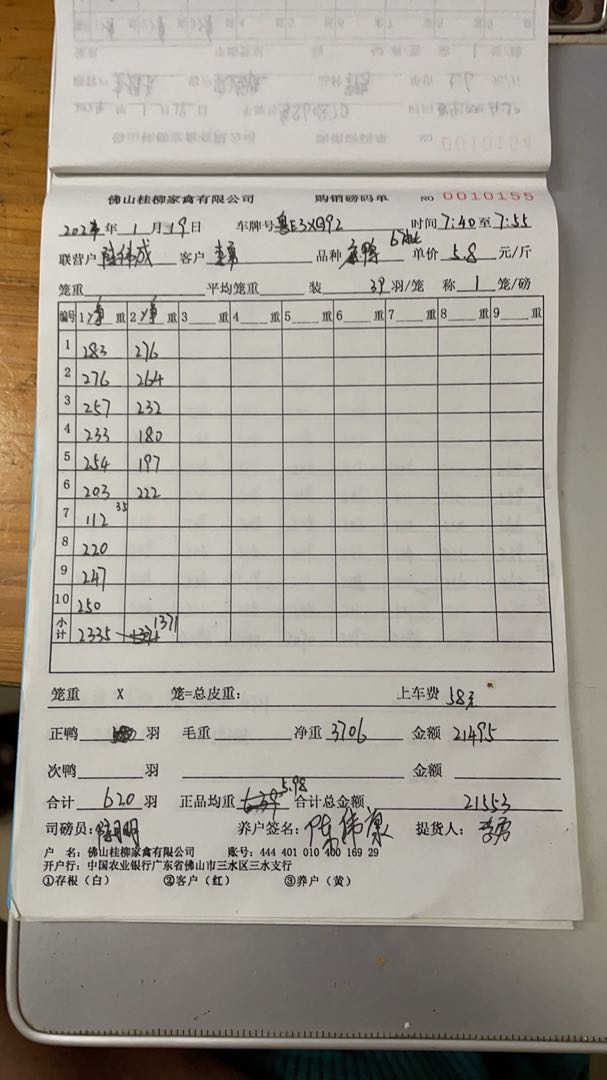 NO 0010154
佛山桂柳家禽有限公司 购销磅码单 NO 0010155
年 1 月 19 日 车牌号 粤E3X992 时间 7:40 至 7:55
联营户 陈伟成 客户 李勇 品种 单价 5.8 元/斤
笼重 平均笼重 装 39 羽/笼 称 1 笼/磅
编号 1 净 重 2 净 重 3 重 4 重 5 重 6 重 7 重 8 重 9 重
1 283 276
2 276 264
3 257 232
4 233 180
5 254 197
6 203 222
7 112 35
8 220
9 247
10 250
小计 2335 1371
笼重 X 笼=总皮重: 上车费 58元
正鸭 羽 毛重 净重 3706 金额 21495
次鸭 羽 金额
合计 620 羽 正品均重 5.98 合计总金额 21553
司磅员: 养户签名: 提货人: 李勇
户 名: 佛山桂柳家禽有限公司 账号: 444 401 010 400 169 29
开户行: 中国农业银行广东省佛山市三水区三水支行
①存根（白） ②客户（红） ③养户（黄）